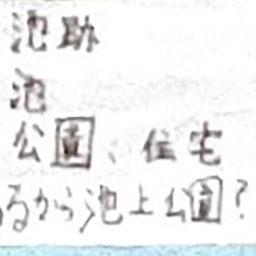 池
公園、住宅
るから池上公園?